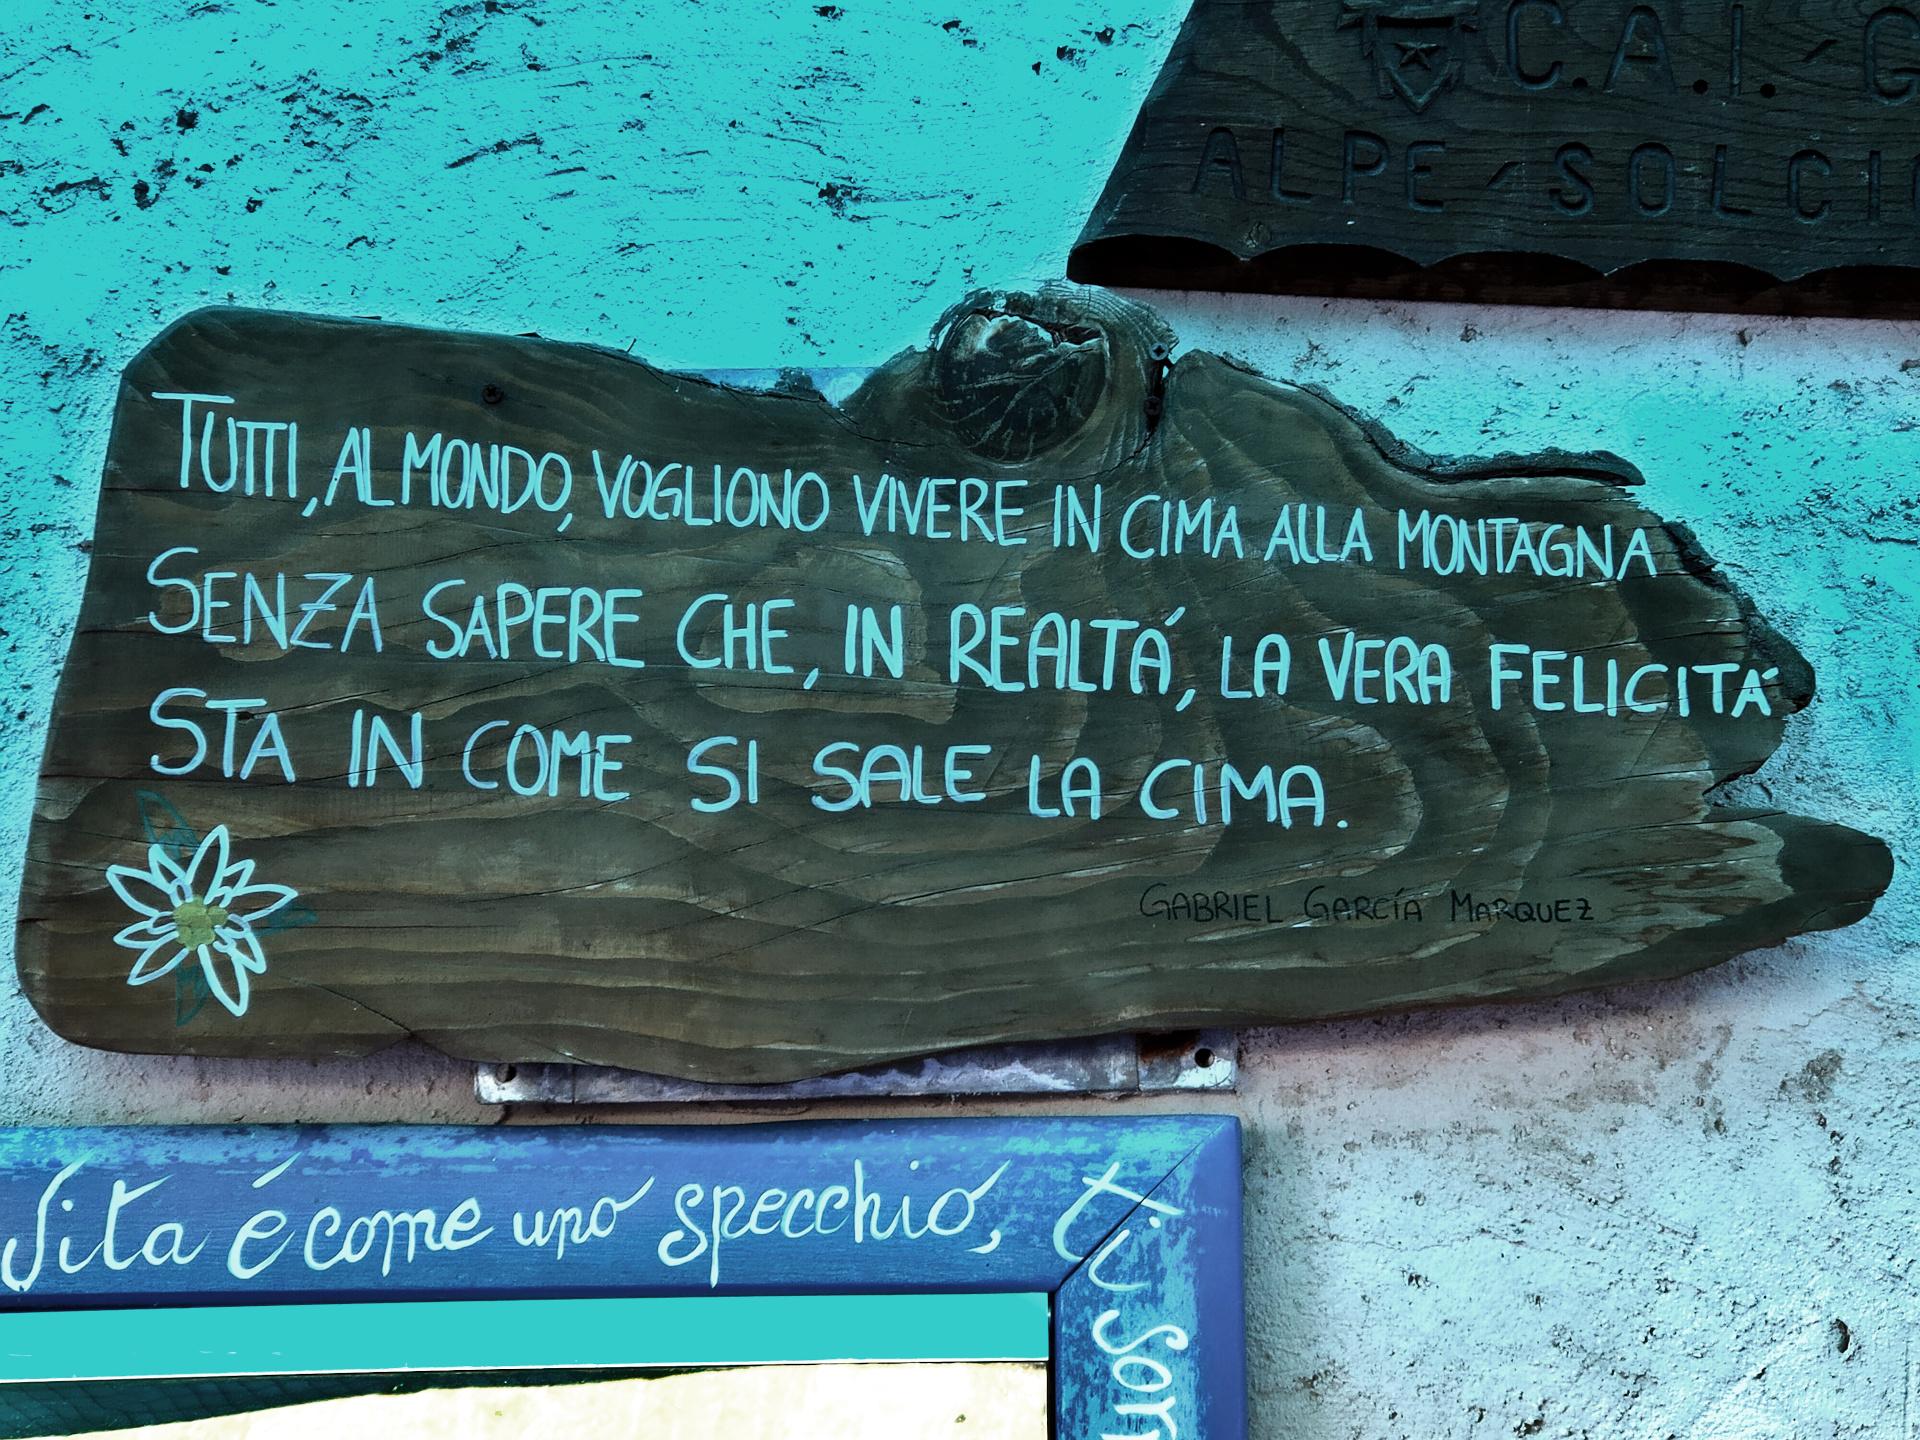 C.A.I. - G
ALPE - SOLCIO
TUTTI, AL MONDO, VOGLIONO VIVERE IN CIMA ALLA MONTAGNA
SENZA SAPERE CHE, IN REALTÁ, LA VERA FELICITÁ
STA IN COME SI SALE LA CIMA.
GABRIEL GARCÍA MARQUEZ
Vita é come uno specchio, ti